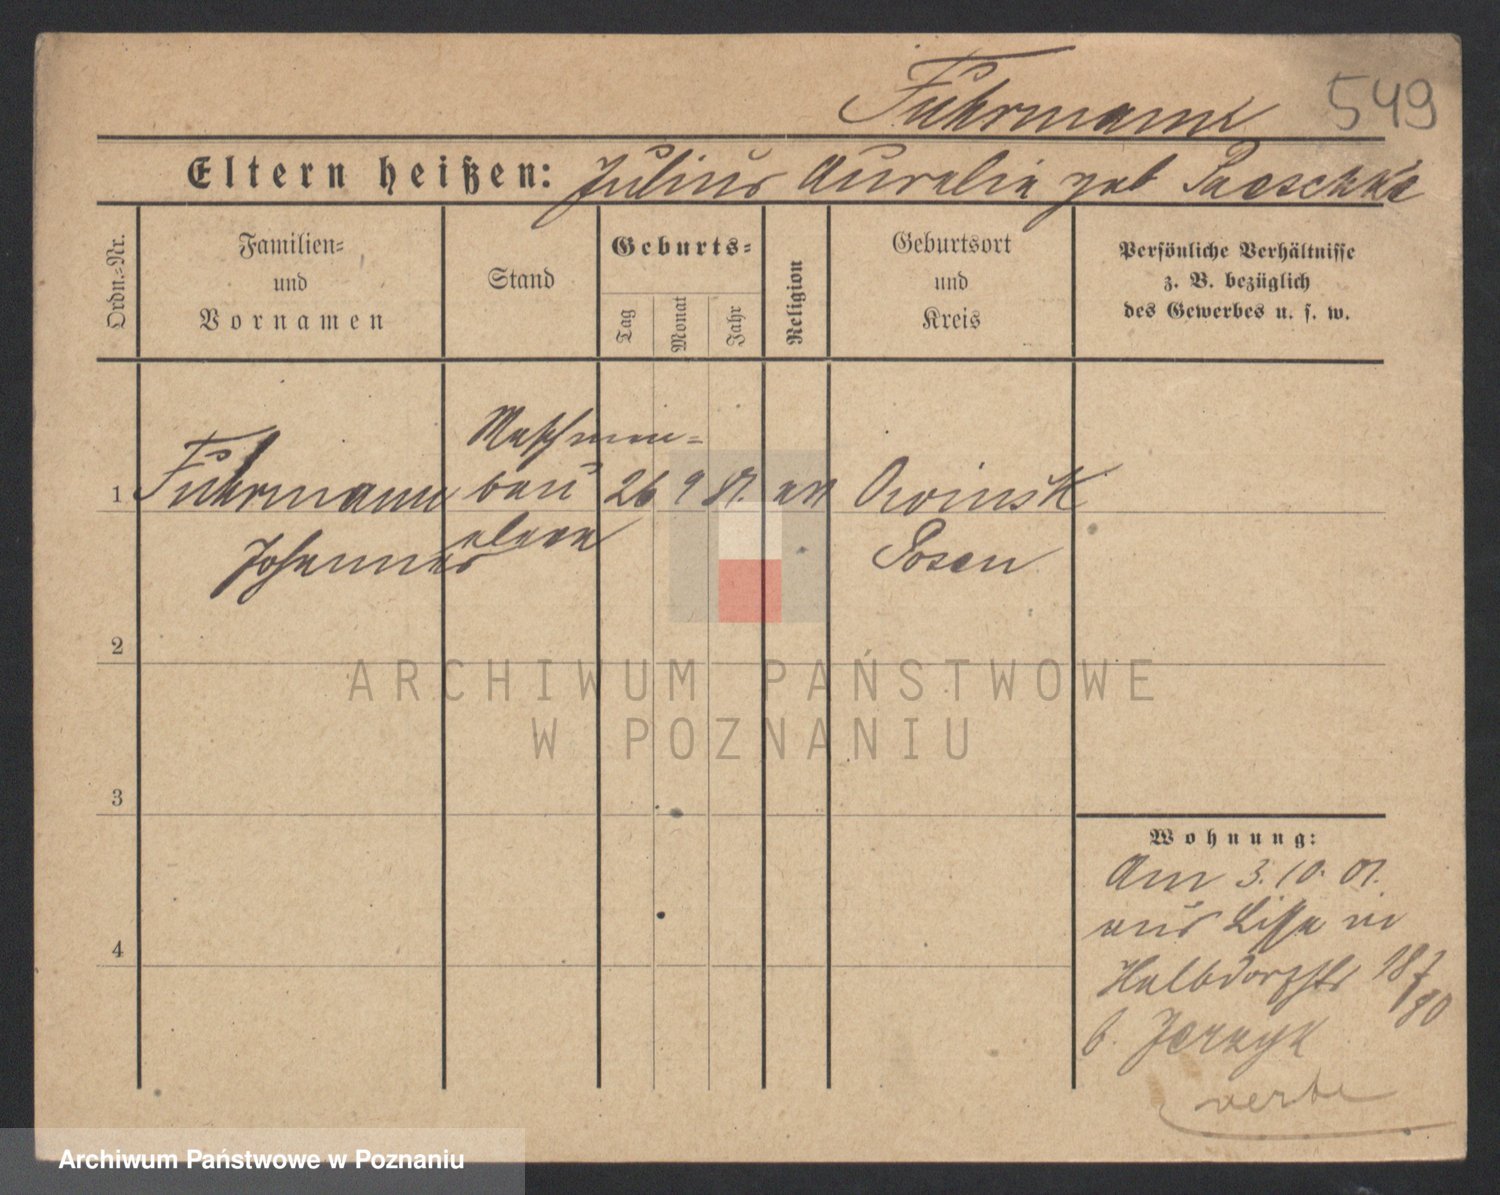 Fuhrmann 549
Eltern heißen: Julius Aurelia geb Paeschke
Ordn.=Nr.
Familien=
und
Vornamen
Stand
Geburts=
Tag
Monat
Jahr
Religion
Geburtsort
und
Kreis
Persönliche Verhältnisse
z. B. bezüglich
des Gewerbes u. s. w.
Maschinen=
1 Fuhrmann bau 26 9 81. Owinsk
Johannes eleve Posen
2
ARCHIWUM PAŃSTWOWE
W POZNANIU
3
Wohnung:
Am 3.10.01.
aus Lissa in
4
Halbdorfstr
b. Jerzyk
Archiwum Państwowe w Poznaniu